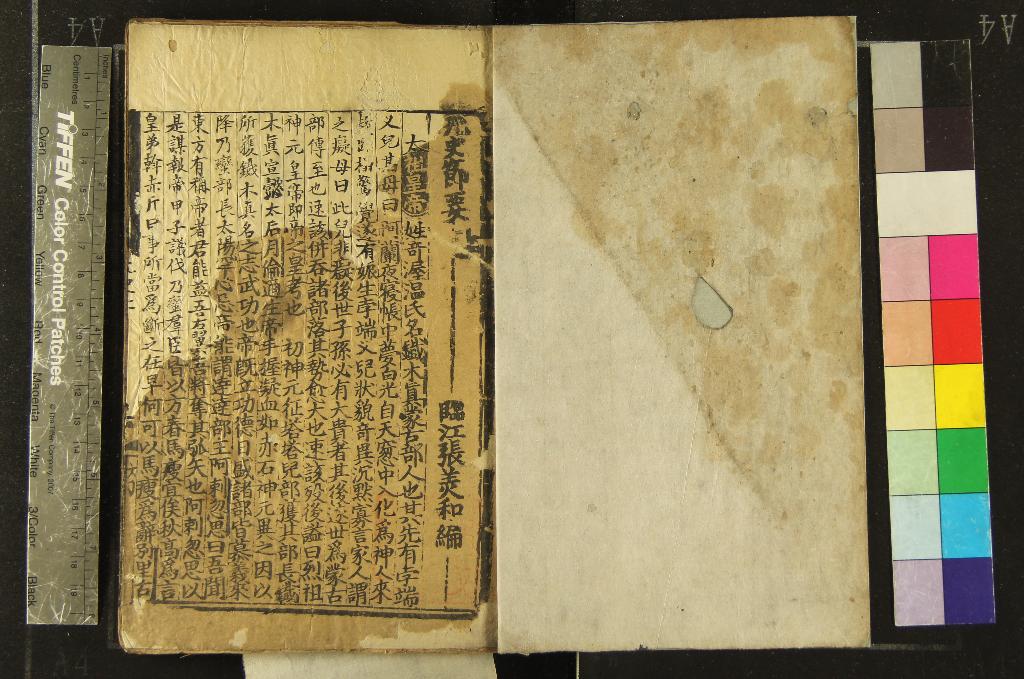 元史節要
臨江張美和編
太祖皇帝姓奇渥温氏名鐵木真蒙古部人也其先有孛端
义兒其母曰阿蘭夜寢帳中夢白光自天窓中入化爲神人來
驚覺遂有娠生孛端义兒狀貌奇異沉默寡言家人謂
之癡母曰此兒非癡後世子孫必有大貴者其後迭世爲蒙古
部傳至也速該併吞諸部落其勢愈大也速該殁後謚曰烈祖
神元皇帝即帝之皇考也 初神元征塔塔兒部獲其部長鐵
木真宣懿太后月倫適生帝手握凝血如赤石神元異之因以
所獲鐵木真名之志武功也帝既立功德日盛諸部皆慕義來
降乃蠻部長太陽罕心忌帝能謂達達部主阿剌忽思曰吾聞
東方有稱帝者君能益吾右翼吾將奪其弧矢也阿剌忽思以
是謀報帝甲子議伐乃蠻羣臣皆以方春馬瘦宜俟秋高爲言
皇弟斡赤斤曰事所當爲斷之在早何可以馬瘦爲辭别里古
TIFFEN Color Control Patches
© The Tiffen Company, 2007
Inches
Centimetres
Blue
Cyan
Green
Yellow
Red
Magenta
White
3/Color
Black
A4
A4